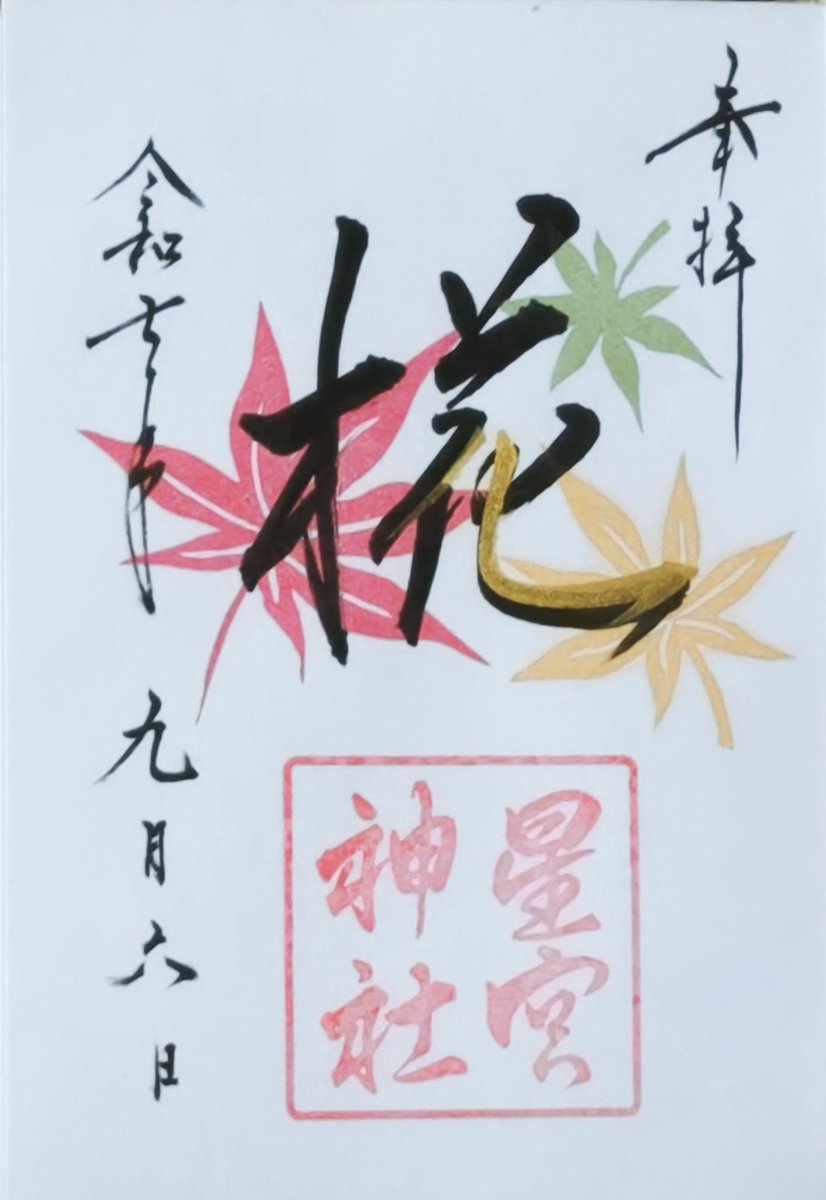 奉拝
椛
星宮
神社
令和七年九月六日